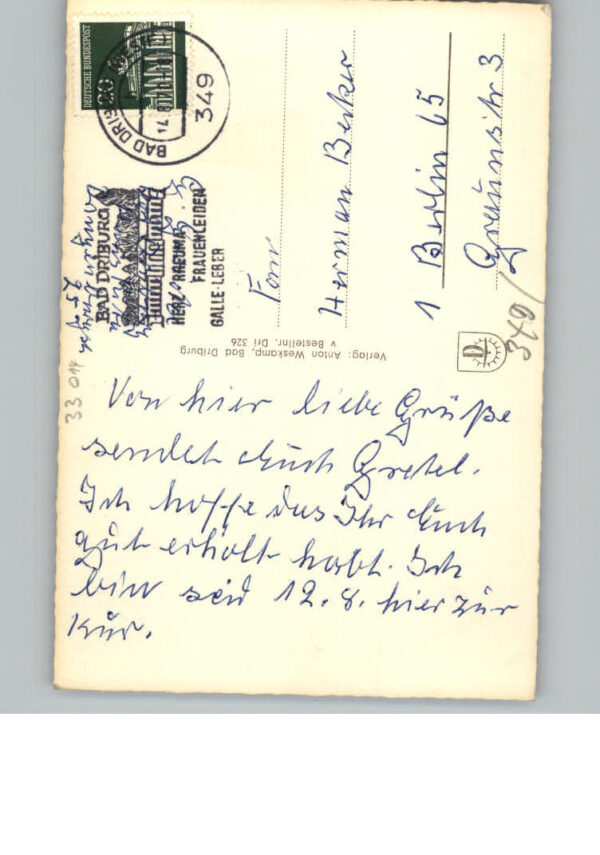 Von hier liebe Grüße
sendet Euch Gretel.
Ich hoffe das Ihr Euch
gut erholt habt. Ich
bin seid 12.8. hier zur
Kur.
Verlag: Anton Weskamp, Bad Driburg
v Bestellnr. Dri 326
DEUTSCHE BUNDESPOST
349
BAD DRIBURG
HERZ RHEUMA
FRAUENLEIDEN
GALLE-LEBER
Herman Becker
1 Berlin 65
Grünstr 3
349
33 014